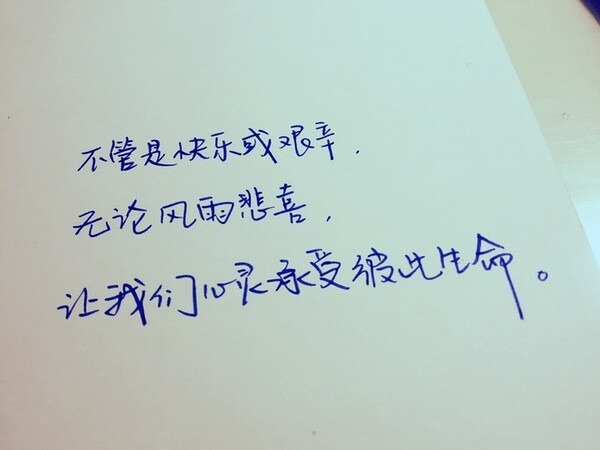 不管是快乐或艰辛,
无论风雨悲喜,
让我们心灵承受彼此生命。